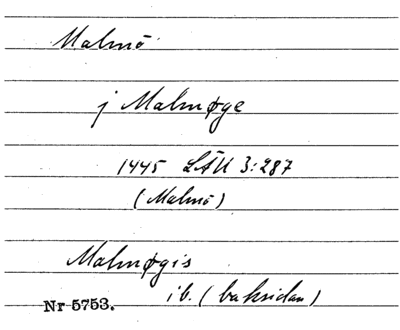 Malmö
j Malmøge
1445 LÄU 3:287
(Malmö)
Malmøgis
ib. (baksidan)
Nr 5753.